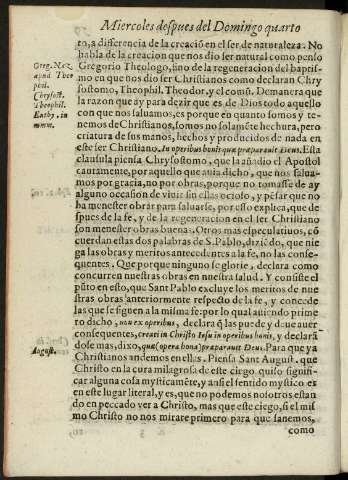 Miercoles despues del Domingo quarto
to, a diferencia de la creació en el ser de naturaleza. No
habla de la creacion que nos dio ser natural como penso
Gregorio Theologo, sino de la regeneracion del baptis-
mo en que nos dio ser Christianos como declaran Chry
sostomo, Theophil. Theodor. y el comũ. Demanera que
la razon que ay para dezir que es de Dios todo aquello
con que nos saluamos, es porque en quanto somos y te-
nemos de Christianos, somos no solamẽte hechura, pero
criatura de sus manos, hechos y producidos de nada en
este ser Christiano. In operibus bonis quæ præparauit Deus. Esta
clausula piensa Chrysostomo, que la añadio el Apostol
cautamente, por aquello que auia dicho, que nos salua-
mos por gracia, no por obras, porque no tomasse de ay
alguno ocasion de viuir sin ellas ocioso, y pẽsar que no
ha menester obras para saluarse, por esso explica, que de
spues de la fe, y de la regeneracion en el ser Christiano
son menester obras buenas. Otros mas especulatiuos, cõ
cuerdan estas dos palabras de S. Pablo, diziẽdo, que nie
ga las obras y meritos antecedentes a la fe, no las conse-
quentes. Que porque ninguno se glorie, declara como
concurren nuestras obras en nuestra salud. Y consiste el
pũto en esto, que Sant Pablo excluye los meritos de nue
stras obras anteriormente respecto de la fe, y concede
las que se siguen a la misma fe: por lo qual auiendo prime
ro dicho, non ex operibus, declara q̃ las puede y deue auer
consequentes, creati in Christo Iesu in operibus bonis, y declarã
dose mas, dixo, quæ (opera bona) præparauit Deus. Para que ya
Christianos andemos en ellas. Piensa Sant August. que
Christo en la cura milagrosa de este ciego quiso signifi-
car alguna cosa mysticamẽte, y ansi el sentido mystico es
en este lugar literal, y es, que no podemos nosotros estan
do en peccado ver a Christo, mas que este ciego, si el mis
mo Christo no nos mirare primero para que sanemos,
como
Greg. Naz.
apud Theo
phil.
Chrysost.
Theophil.
August.